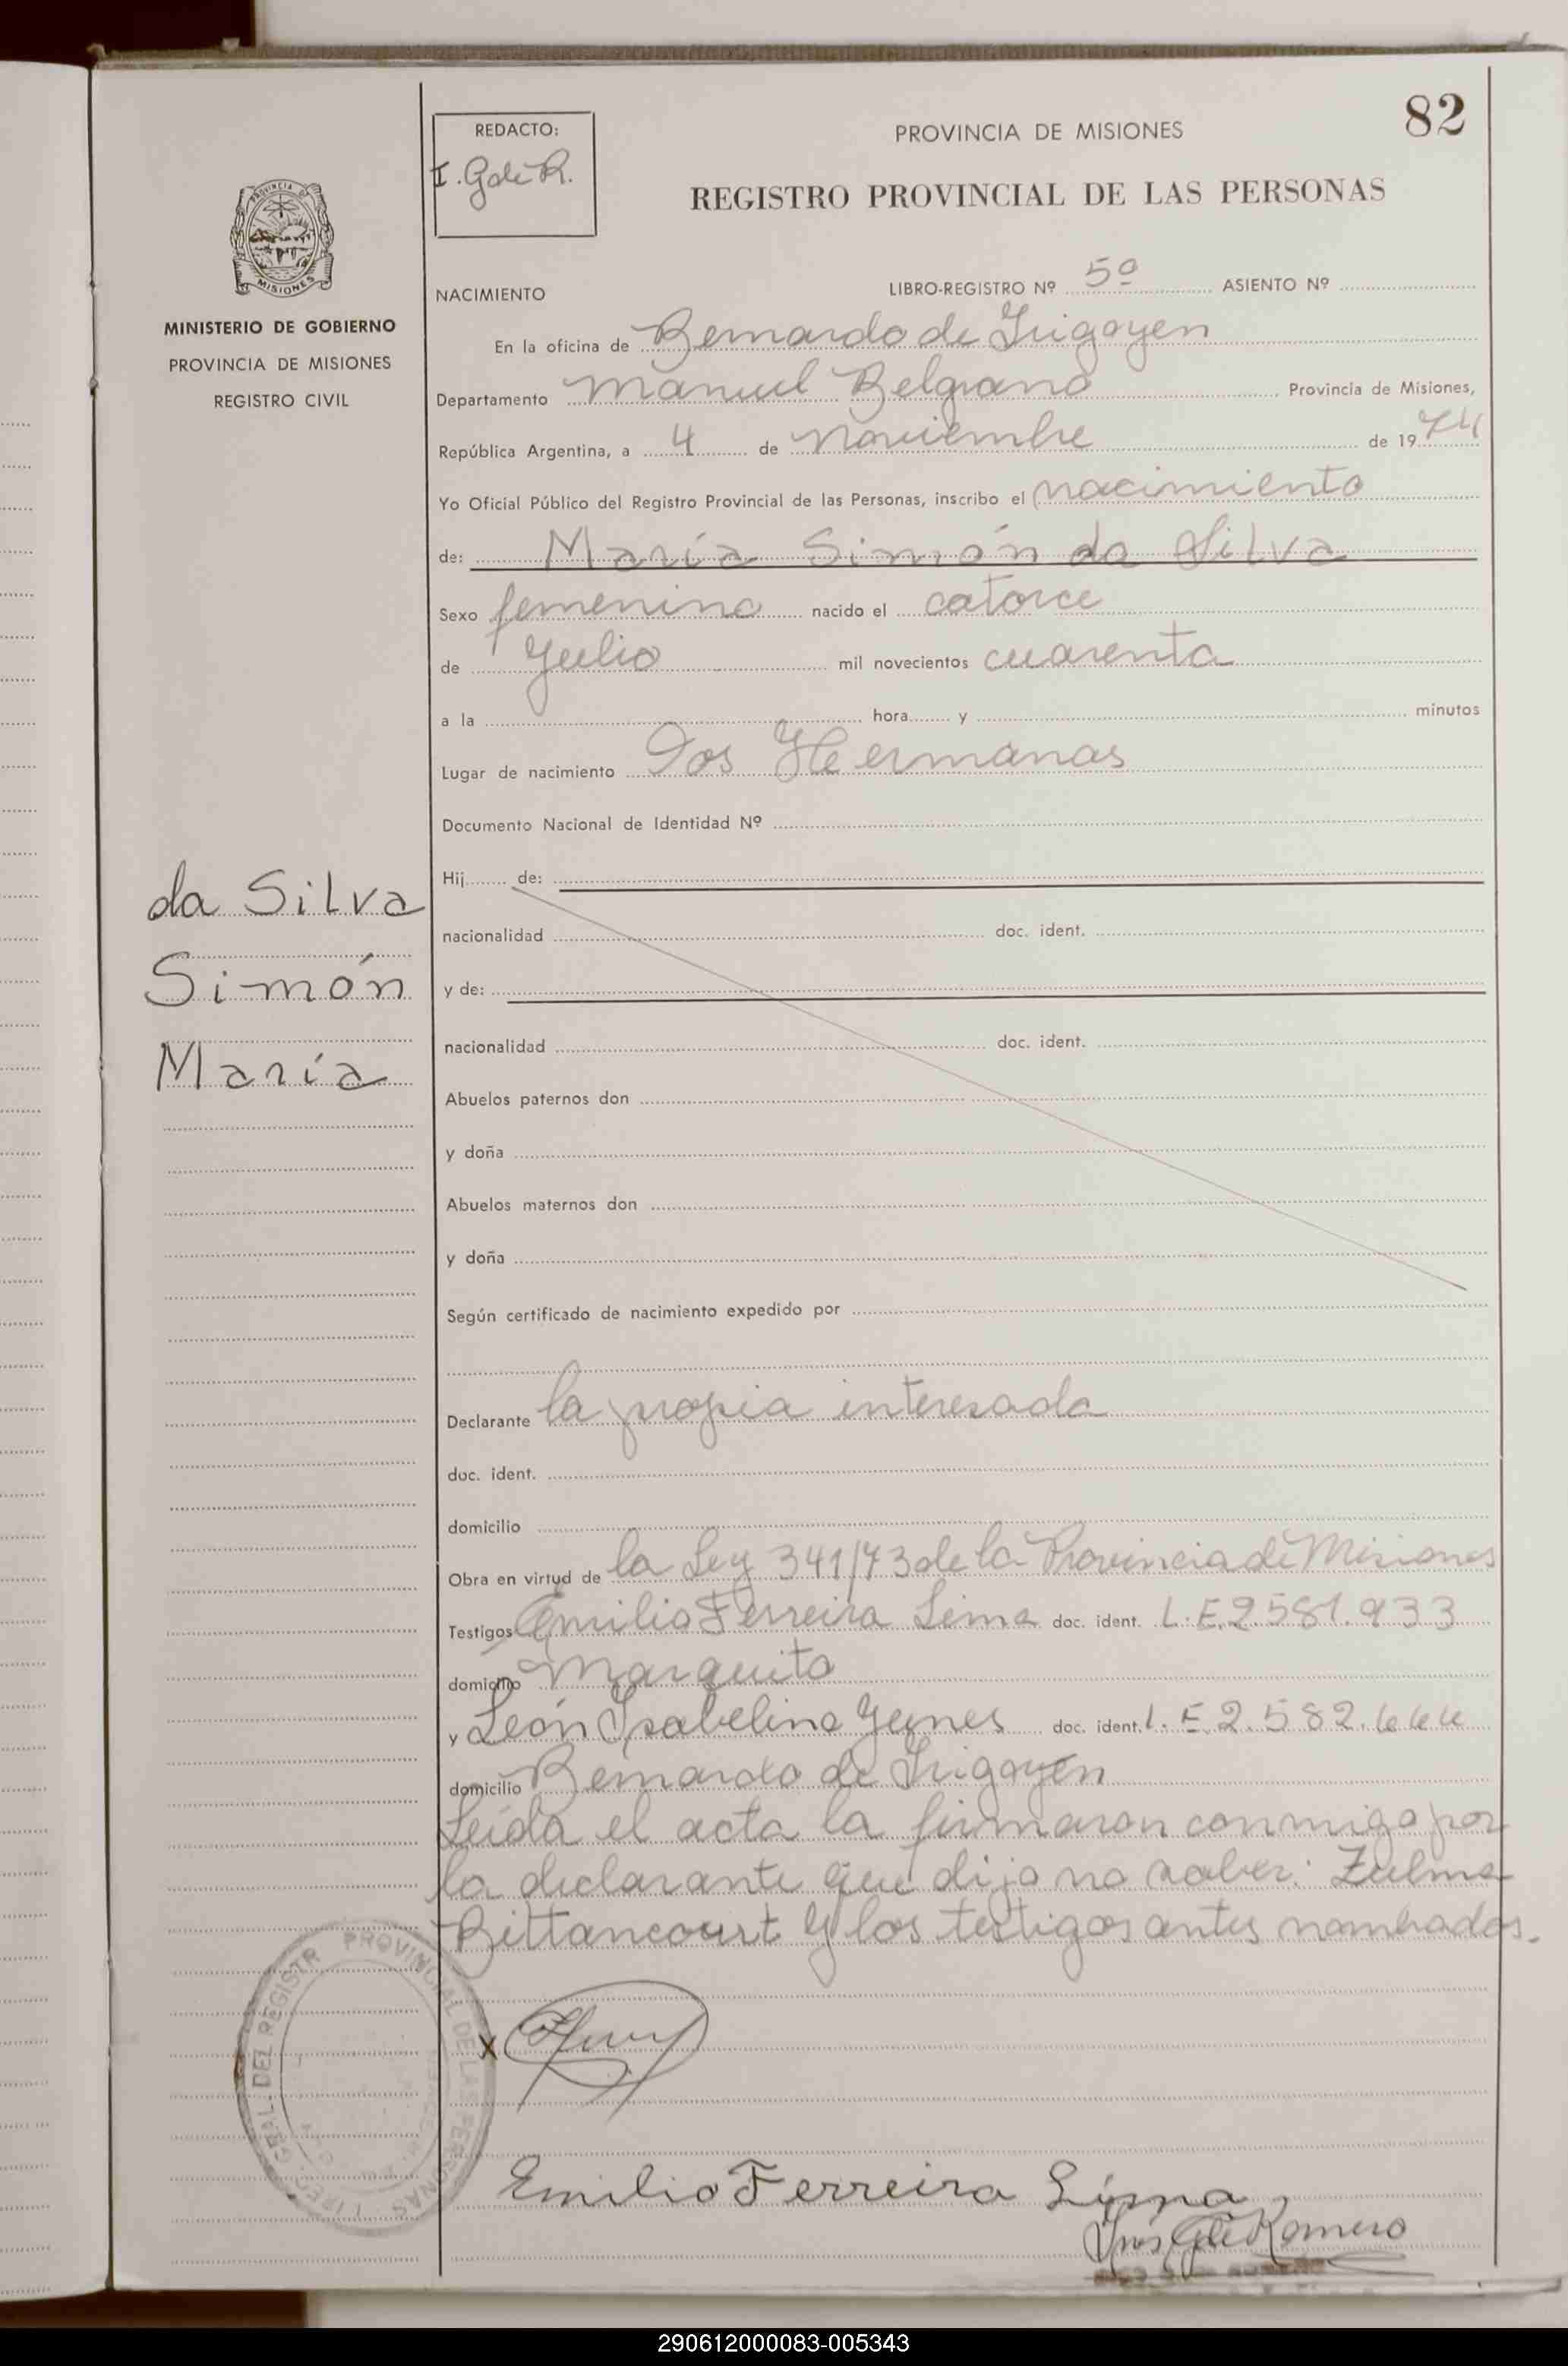 82
REDACTO:
I. G de R.
PROVINCIA DE MISIONES
REGISTRO PROVINCIAL DE LAS PERSONAS
PROVINCIA DE
MISIONES
MINISTERIO DE GOBIERNO
PROVINCIA DE MISIONES
REGISTRO CIVIL
NACIMIENTO LIBRO-REGISTRO Nº 5º ASIENTO Nº
En la oficina de Bernardo de Irigoyen
Departamento Manuel Belgrano Provincia de Misiones,
República Argentina, a 4 de Noviembre de 1974
Yo Oficial Público del Registro Provincial de las Personas, inscribo el nacimiento
de: María Simón da Silva
Sexo femenino nacido el catorce
de Julio mil novecientos cuarenta
a la hora y minutos
Lugar de nacimiento Dos Hermanas
Documento Nacional de Identidad Nº
Hij de:
nacionalidad doc. ident.
y de:
nacionalidad doc. ident.
Abuelos paternos don
y doña
Abuelos maternos don
y doña
Según certificado de nacimiento expedido por
da Silva
Simón
María
Declarante la propia interesada
doc. ident.
domicilio
Obra en virtud de la Ley 341/73 de la Provincia de Misiones
Testigos Emilio Ferreira Lima doc. ident. L.E.2.581.933
domicilio Marquito
y León Isabelino Yunes doc. ident. L.E.2.582.644
domicilio Bernardo de Irigoyen
Leída el acta la firmaron conmigo por
la declarante que dijo no saber: Zulma
Bittancourt y los testigos antes nombrados.
DIREC. GRAL. DEL REGISTR PROVINCIAL DE LAS PERSONAS
X
Emilio Ferreira Lima
Inés G de Romero
290612000083-005343